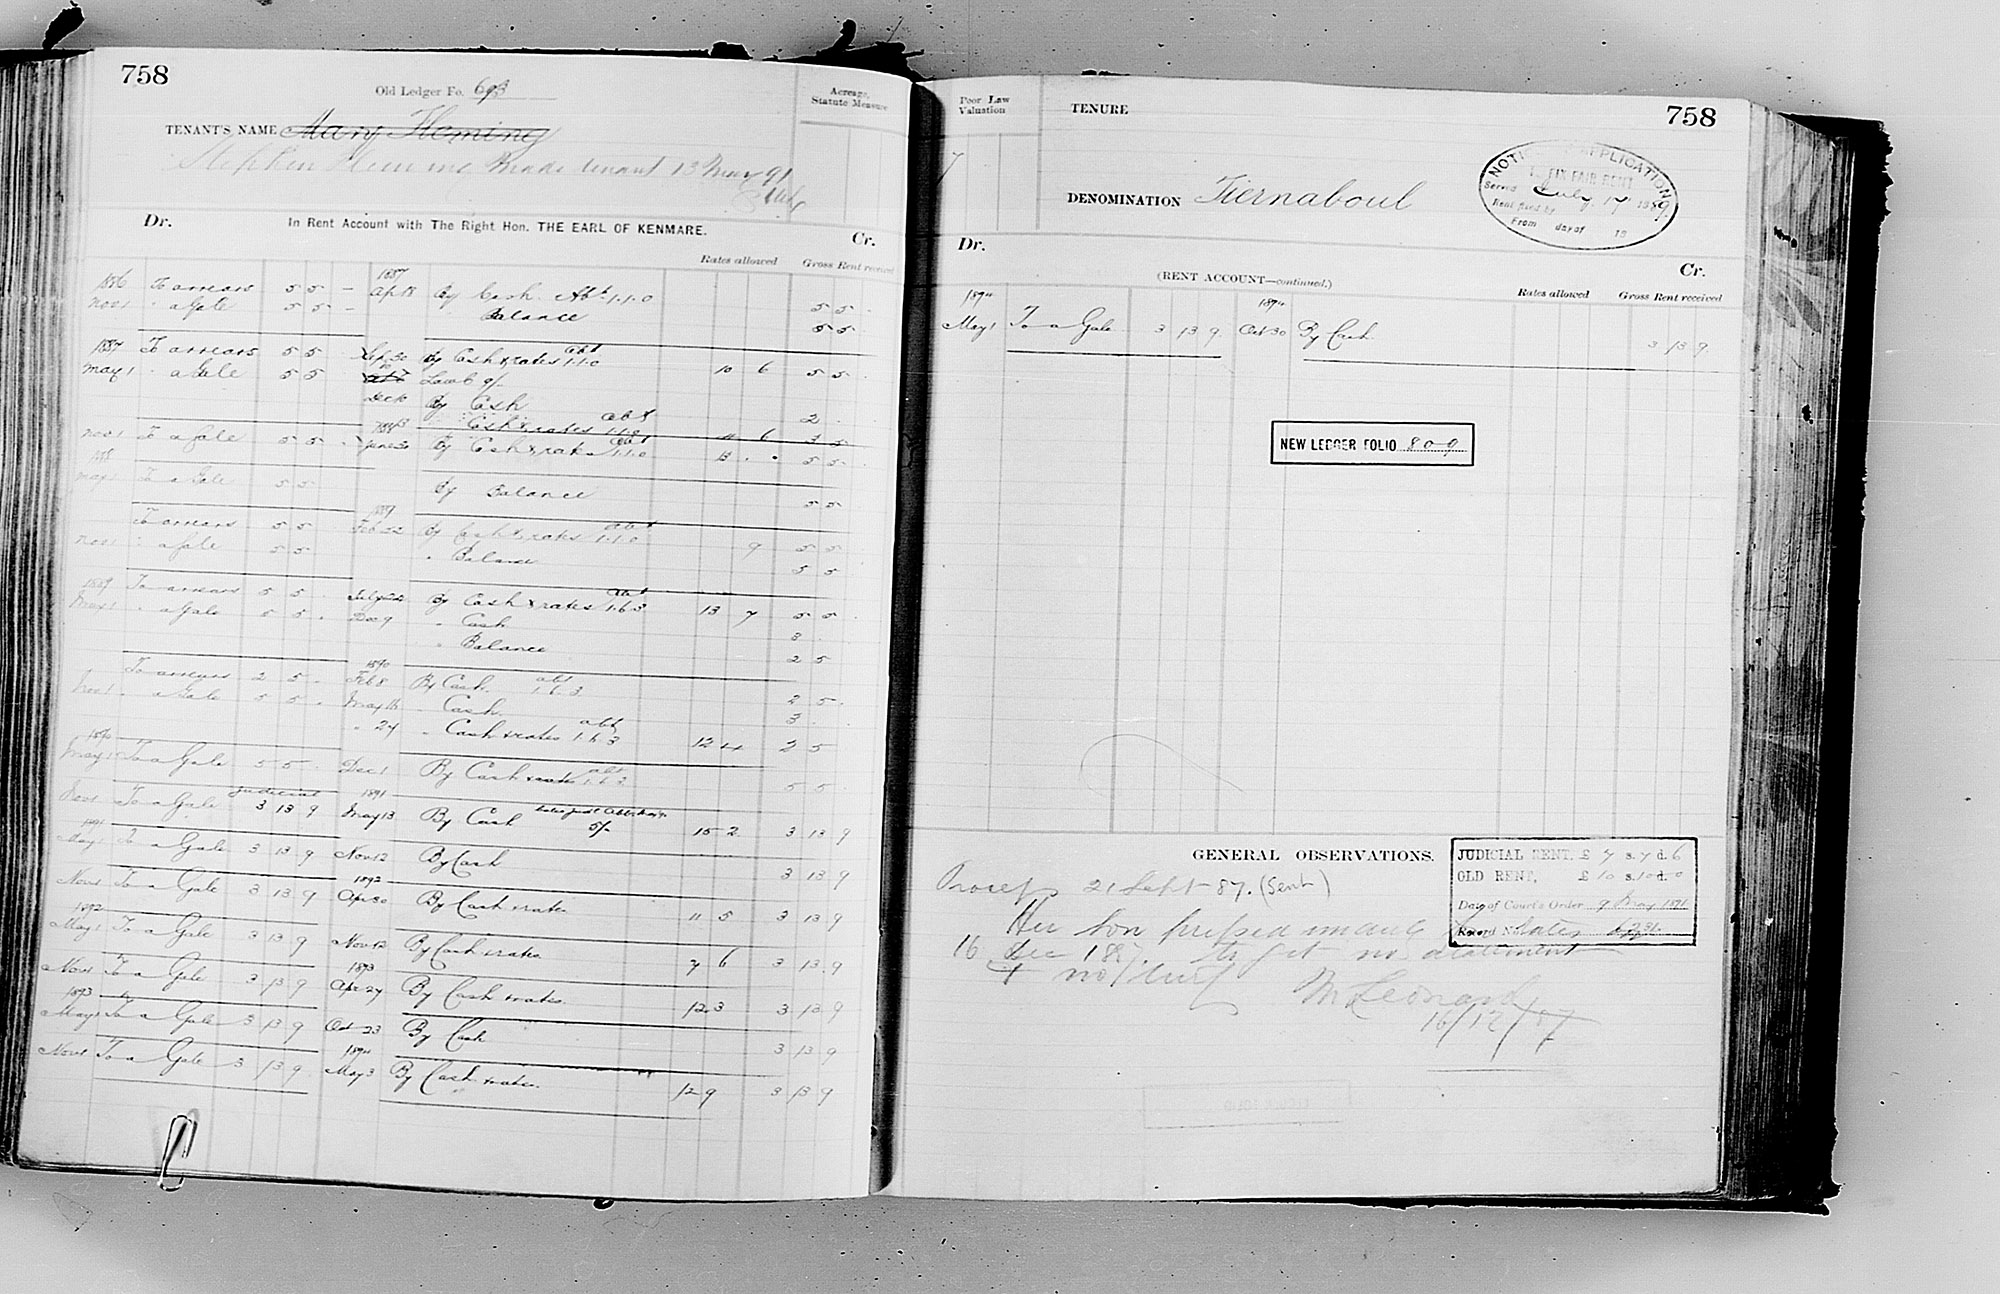 758
Old Ledger Fo. 693
Acreage, Statute Measure
TENANT'S NAME Mary Fleming
Stephen Fleming Made tenant 13 May 91
Dr. In Rent Account with The Right Hon. THE EARL OF KENMARE. Cr.
Rates allowed Gross Rent received
1886 To arrears 5 5 - 1887 Apl 18 By Cash Abt. 1.1.0 5 5
Nov 1 " a Gale 5 5 - Balance 5 5
1887 To arrears 5 5 Sep 30 By Cash & rates abt 1.1.0 10 6 5 5
May 1 " a Gale 5 5
Dec 10 By Cash 2
Cash & rates abt 1.1.0 6 3 5
Nov 1 To a Gale 5 5 1888 June 30 By Cash & rates abt 1.1.0 13 5 5
1888
May 1 To a Gale 5 5 By Balance 5 5
To arrears 5 5 1889 Feb 22 By Cash & rates abt 1.1.0 9 5 5
Nov 1 " a Gale 5 5 " Balance 5 5
1889 To arrears 5 5 July 22 By Cash & rates abt 1.6.3 13 7 5 5
May 1 " a Gale 5 5 Dec 9 " Cash 3
" Balance 2 5
To arrears 2 5 1890 Feb 8 By Cash abt 1.6.3 2 5
Nov 1 " a Gale 5 5 May 16 " Cash 3
" 24 " Cash & rates abt 1.6.3 12 4 2 5
1890
May 1 To a Gale 5 5 Dec 1 By Cash & rates abt 1.6.3 5 5
Judicial
Nov 1 To a Gale 3 13 9 1891 May 13 By Cash 5/- 15 2 3 13 9
1891
May 1 To a Gale 3 13 9 Nov 12 By Cash 3 13 9
Nov 1 To a Gale 3 13 9 1892 Apr 30 By Cash & rates 11 5 3 13 9
1892
May 1 To a Gale 3 13 9 Nov 12 By Cash & rates 7 6 3 13 9
Nov 1 To a Gale 3 13 9 1893 Apr 27 By Cash & rates 12 3 3 13 9
1893
May 1 To a Gale 3 13 9 Oct 23 By Cash 3 13 9
Nov 1 To a Gale 3 13 9 1894 May 3 By Cash & rates 12 9 3 13 9
Poor Law Valuation
TENURE
758
DENOMINATION Tiernaboul
NOTICE APPLICATION
TO FIX FAIR RENT
Served July 17 1889
Rent fixed by
From day of 18
Dr. Cr.
(RENT ACCOUNT—continued.)
Rates allowed Gross Rent received
1894 1894
May 1 To a Gale 3 13 9 Oct 30 By Cash 3 13 9
NEW LEDGER FOLIO 809
GENERAL OBSERVATIONS.
JUDICIAL RENT, £ 7 s. 7 d. 6
OLD RENT, £ 10 s. 10 d. 0
Date of Court's Order 9 May 1891
Record No.
Process 21 Sept 87. (Sent)
Her son rates
16 Dec 1887. to get no abatement
& no turf
M Leonard
16/12/87